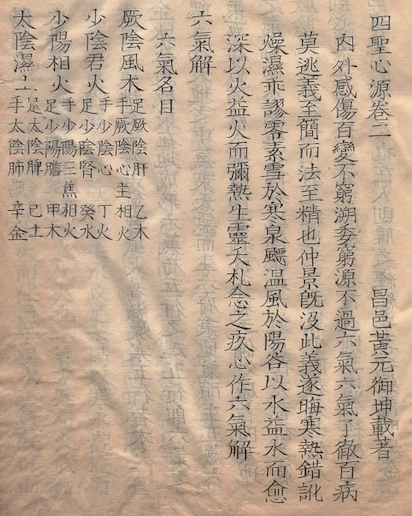 四聖心源卷二
昌邑黃元御坤載著
內外感傷百變不窮溯委窮源不過六氣六氣了徹百病
莫逃義至簡而法至精也仲景旣沒此義遂晦寒熱錯訛
燥濕乖謬零素雪於寒泉飄温風於陽谷以水益水而愈
深以火益火而彌熱生靈夭札念之疚心作六氣解
六氣解
六氣名目
厥陰風木
足厥陰肝 乙木
手厥陰心主 相火
少陰君火
手少陰心 丁火
足少陰腎 癸水
少陽相火
手少陽三焦 相火
足少陽膽 甲木
太陰濕土
足太陰脾 己土
手太陰肺 辛金